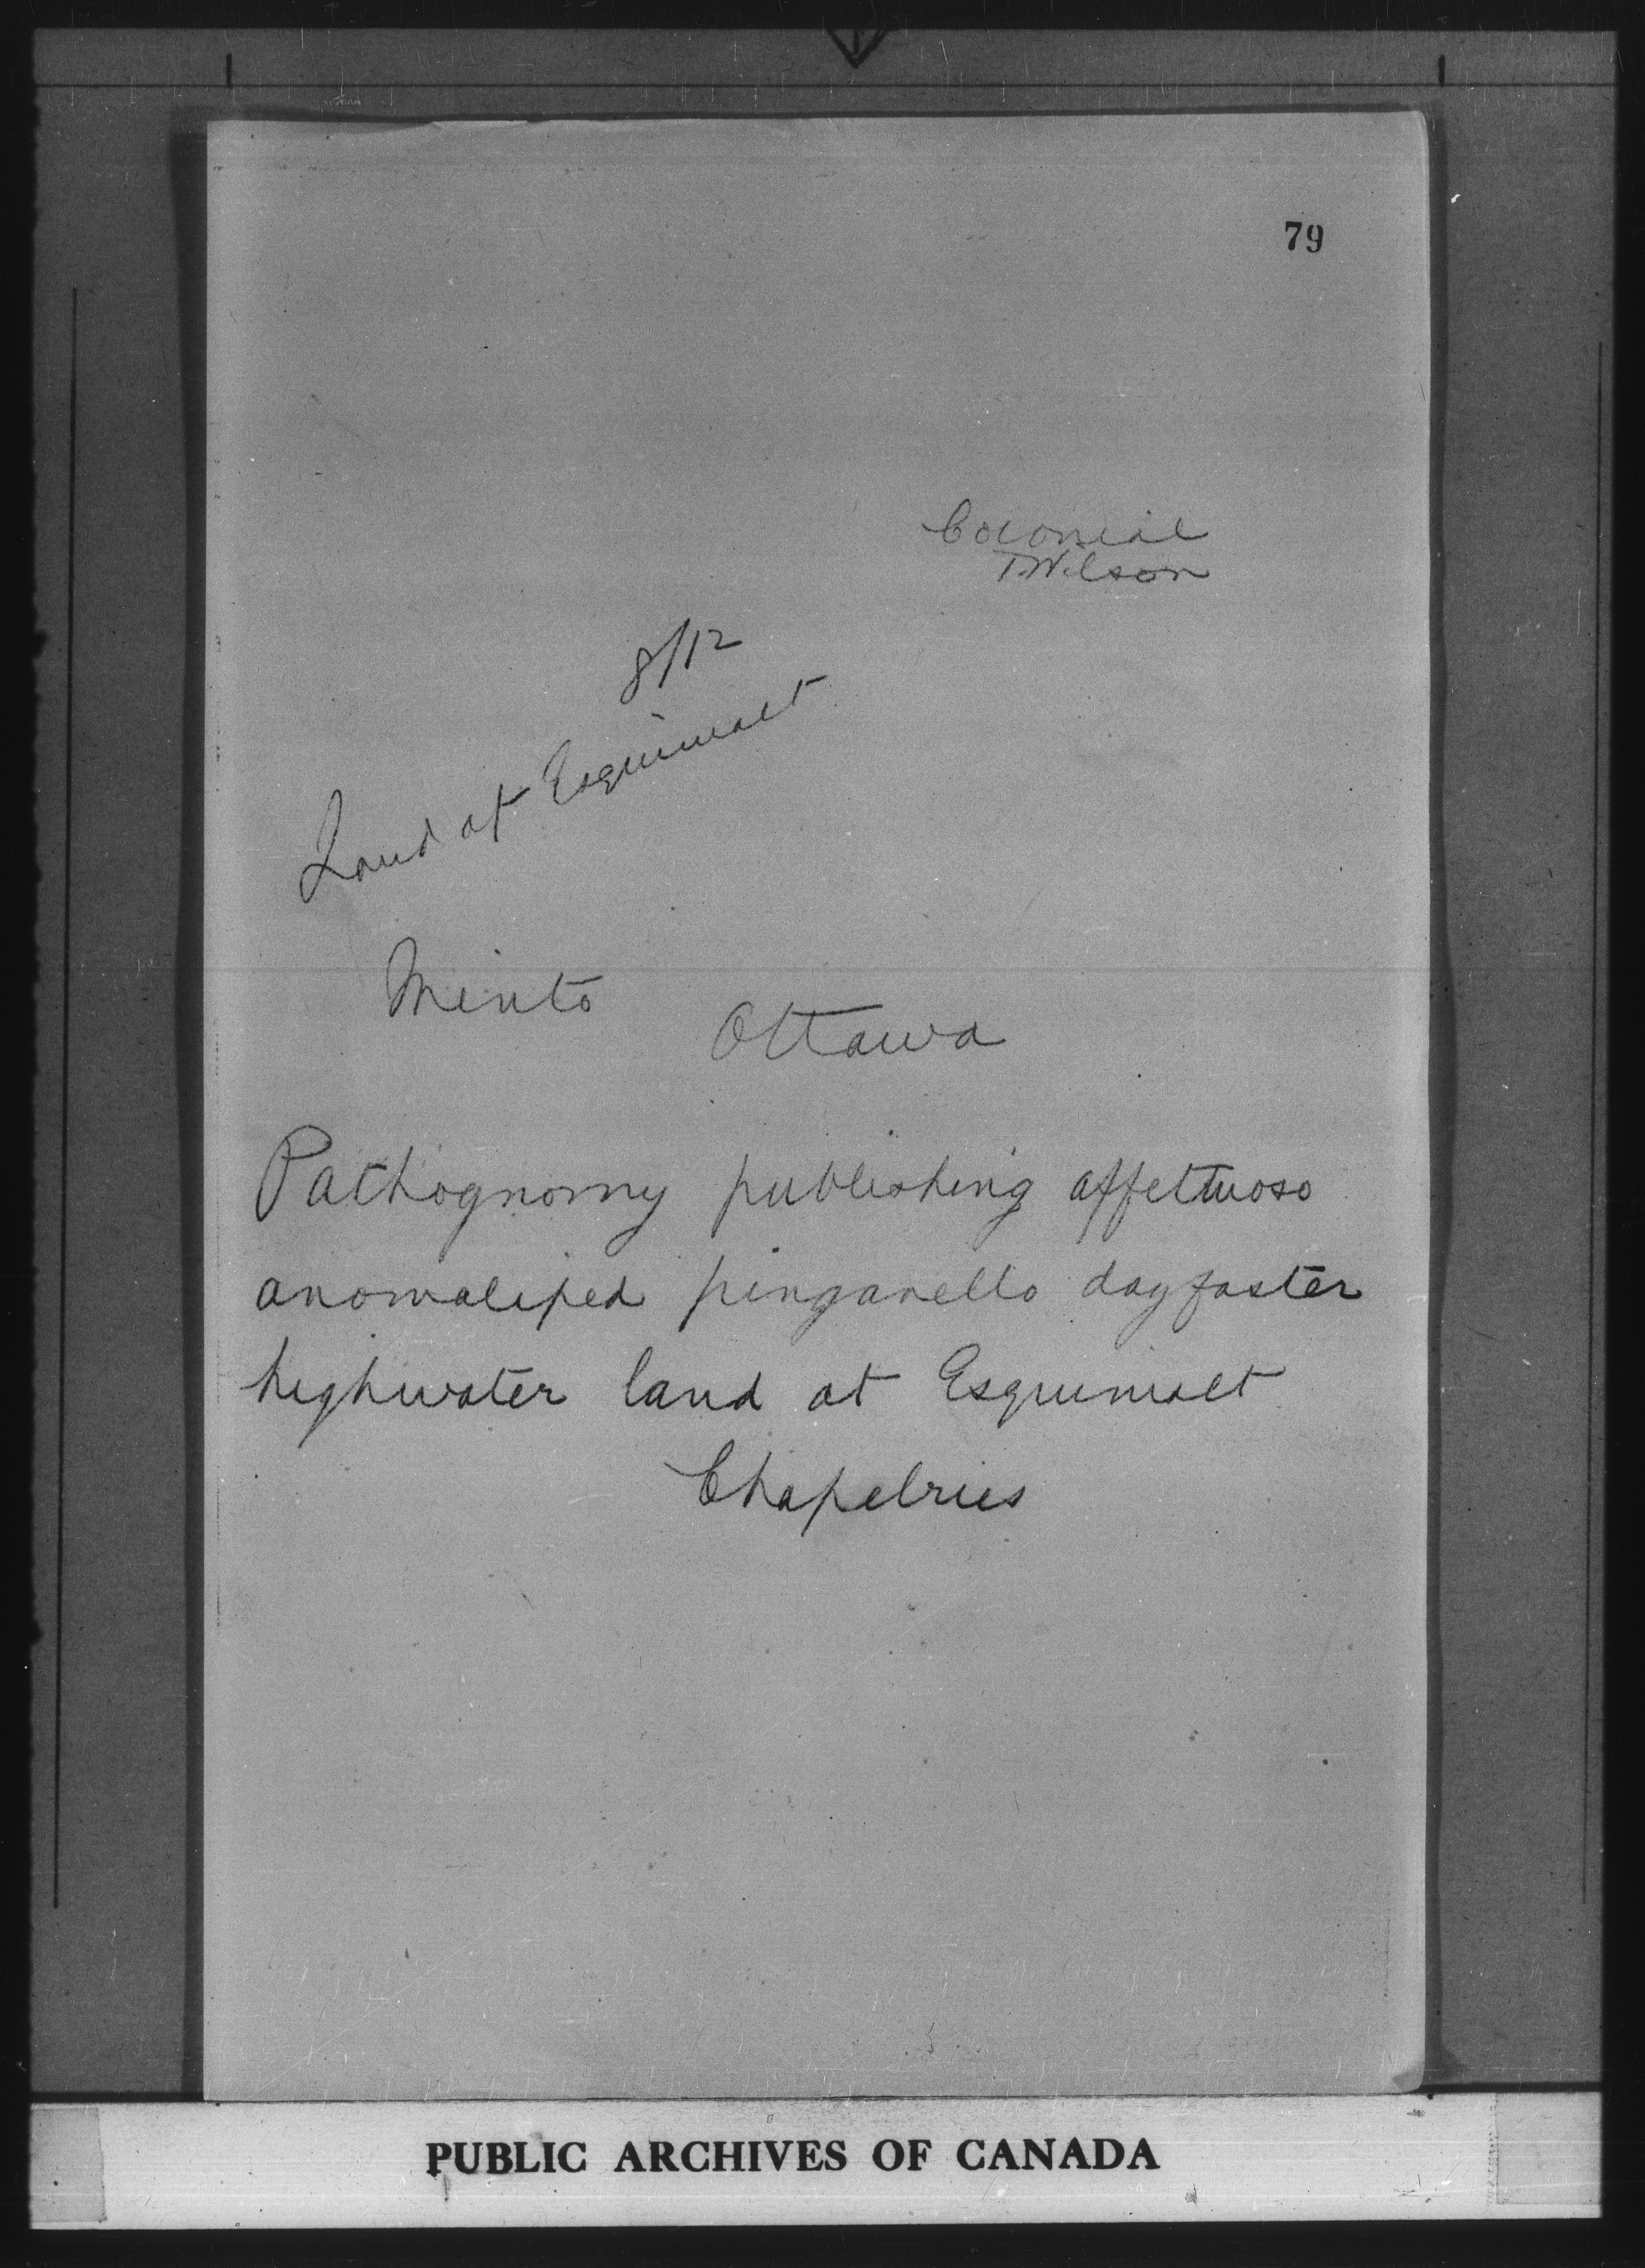 79
Colonial
T. Wilson
8/12
Land at Esquimalt
Minto
Ottawa
Pathognomy publishing affettuoso
anomaliped pinganello dayfaster
highwater land at Esquimalt
Chapelries
PUBLIC ARCHIVES OF CANADA